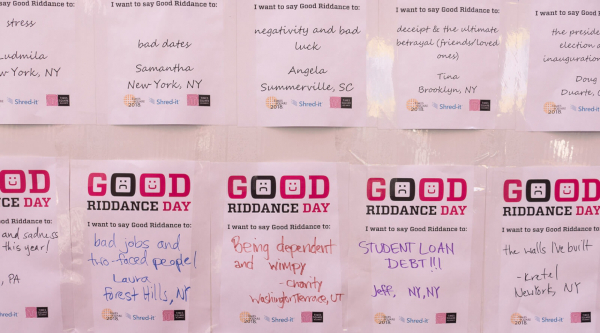 say Good Riddance to:
stress
Ludmila
New York, NY
I want to say Good Riddance to:
bad dates
Samantha
New York, NY
Shred-it
I want to say Good Riddance to:
negativity and bad
luck
Angela
Summerville, SC
2018
Shred-it
I want to say Good Riddance to:
deceipt & the ultimate
betrayal (friends/loved
ones)
Tina
Brooklyn, NY
2018
Shred-it
I want to say Good Riddan
the preside
election a
inauguration
Doug
Duarte, C
2018
Shred-it
OOD
NCE DAY
ay Good Riddance to:
and sadness
this year!
, PA
Shred-it
GOOD
RIDDANCE DAY
I want to say Good Riddance to:
bad jobs and
two-faced people!
Laura
Forest Hills, NY
2018
Shred-it
GOOD
RIDDANCE DAY
I want to say Good Riddance to:
Being dependent
and wimpy
- Charity
Washington Terrace, UT
2018
Shred-it
GOOD
RIDDANCE DAY
I want to say Good Riddance to:
STUDENT LOAN
DEBT!!!
Jeff, NY, NY
2018
Shred-it
GOOD
RIDDANCE DA
I want to say Good Riddance to:
the walls I've built
- Kretel
New York, NY
2018
Shred-it